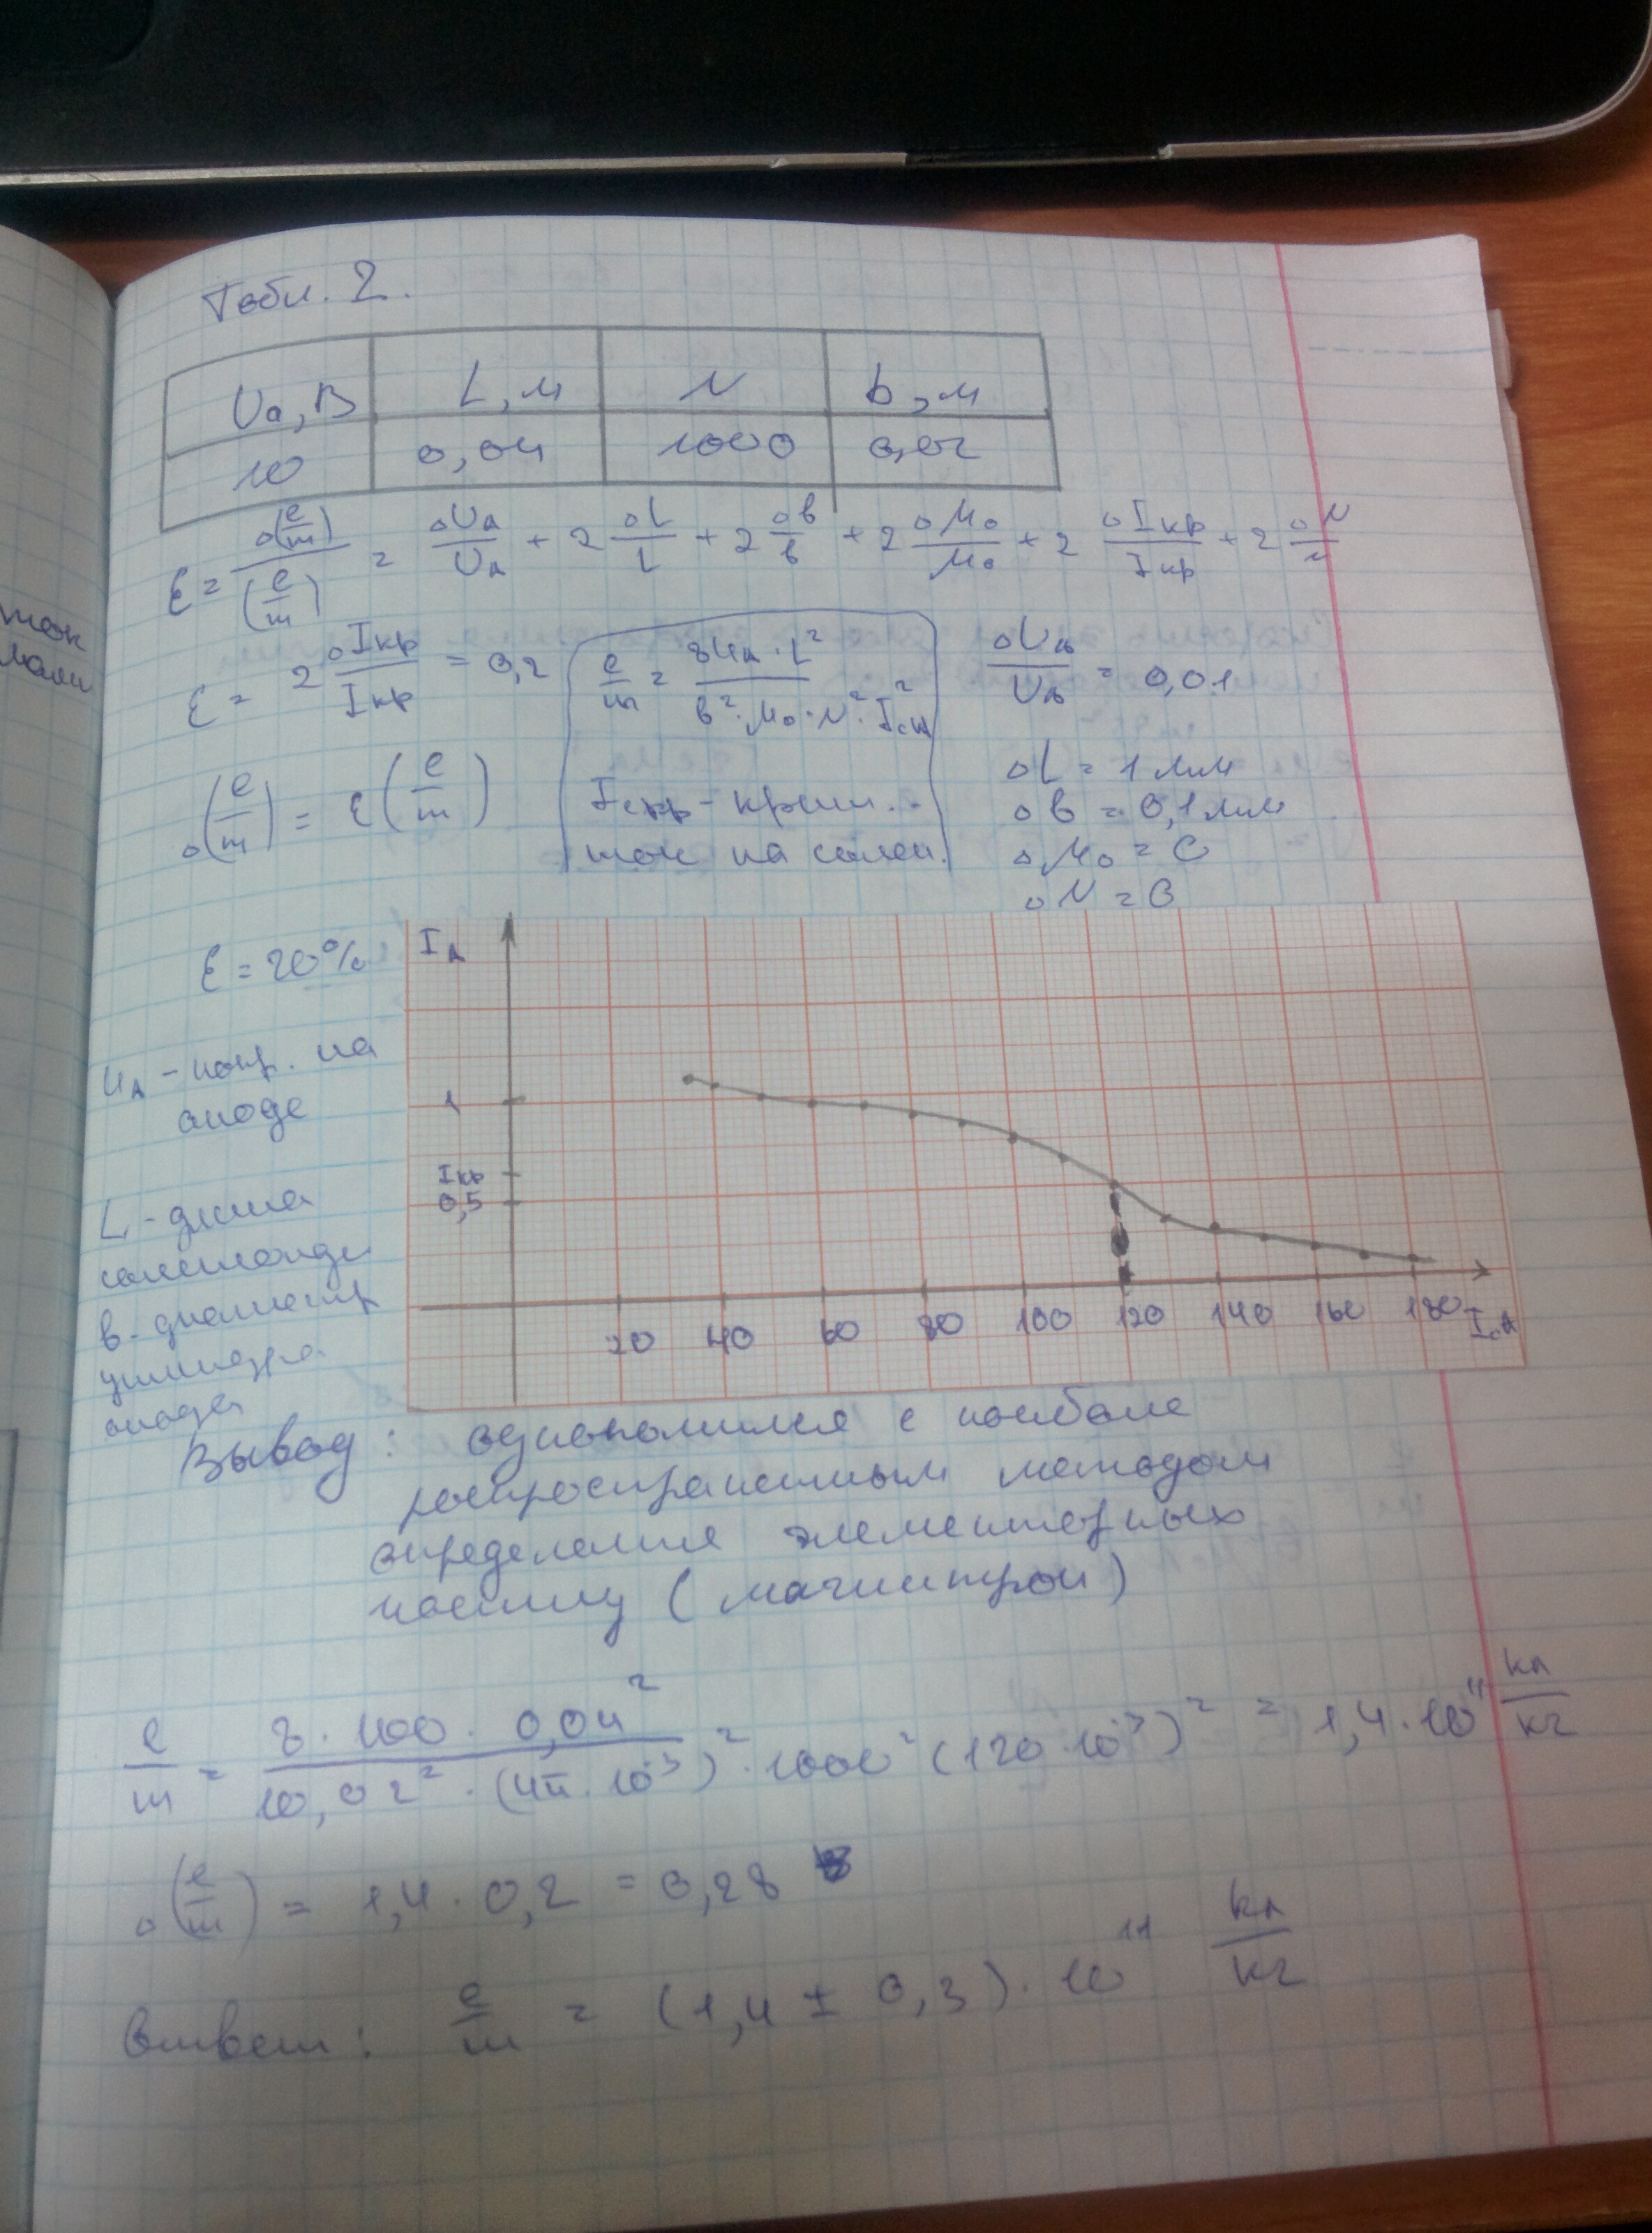 Табл. 2.
Uа, В | L, м | N | b, м
10 | 0,04 | 1000 | 0,02
ε = Δ(e/m) / (e/m) = ΔUа/Uа + 2 ΔL/L + 2 Δв/в + 2 Δμ₀/μ₀ + 2 ΔIкр/Iкр + 2 ΔN/N
ε = 2 ΔIкр/Iкр = 0,2
e/m = 8Uа·L² / в²·μ₀·N²·Iса²
ΔUа/Uа = 0,01
Δ(e/m) = ε(e/m)
Iскр - крит.
ток на солен.
ΔL = 1 мм
Δв = 0,1 мм
Δμ₀ = 0
ΔN = 0
ε = 20%
Uа - напр. на
аноде
L - длина
соленоида
в - диаметр
цилиндра
анода
ток
Iа
1
Iкр
0,5
20 40 60 80 100 120 140 160 180 Iса
Вывод: ознакомился с наиболе
распространенным методом
определения элементарных
(магнитрон)
e/m = 8·100·0,04² / 10,02²·(4π·10⁻³)²·1000²(120·10⁻³)² = 1,4·10¹¹ кл/кг
Δ(e/m) = 1,4·0,2 = 0,28
Ответ: e/m = (1,4 ± 0,3)·10¹¹ кл/кг